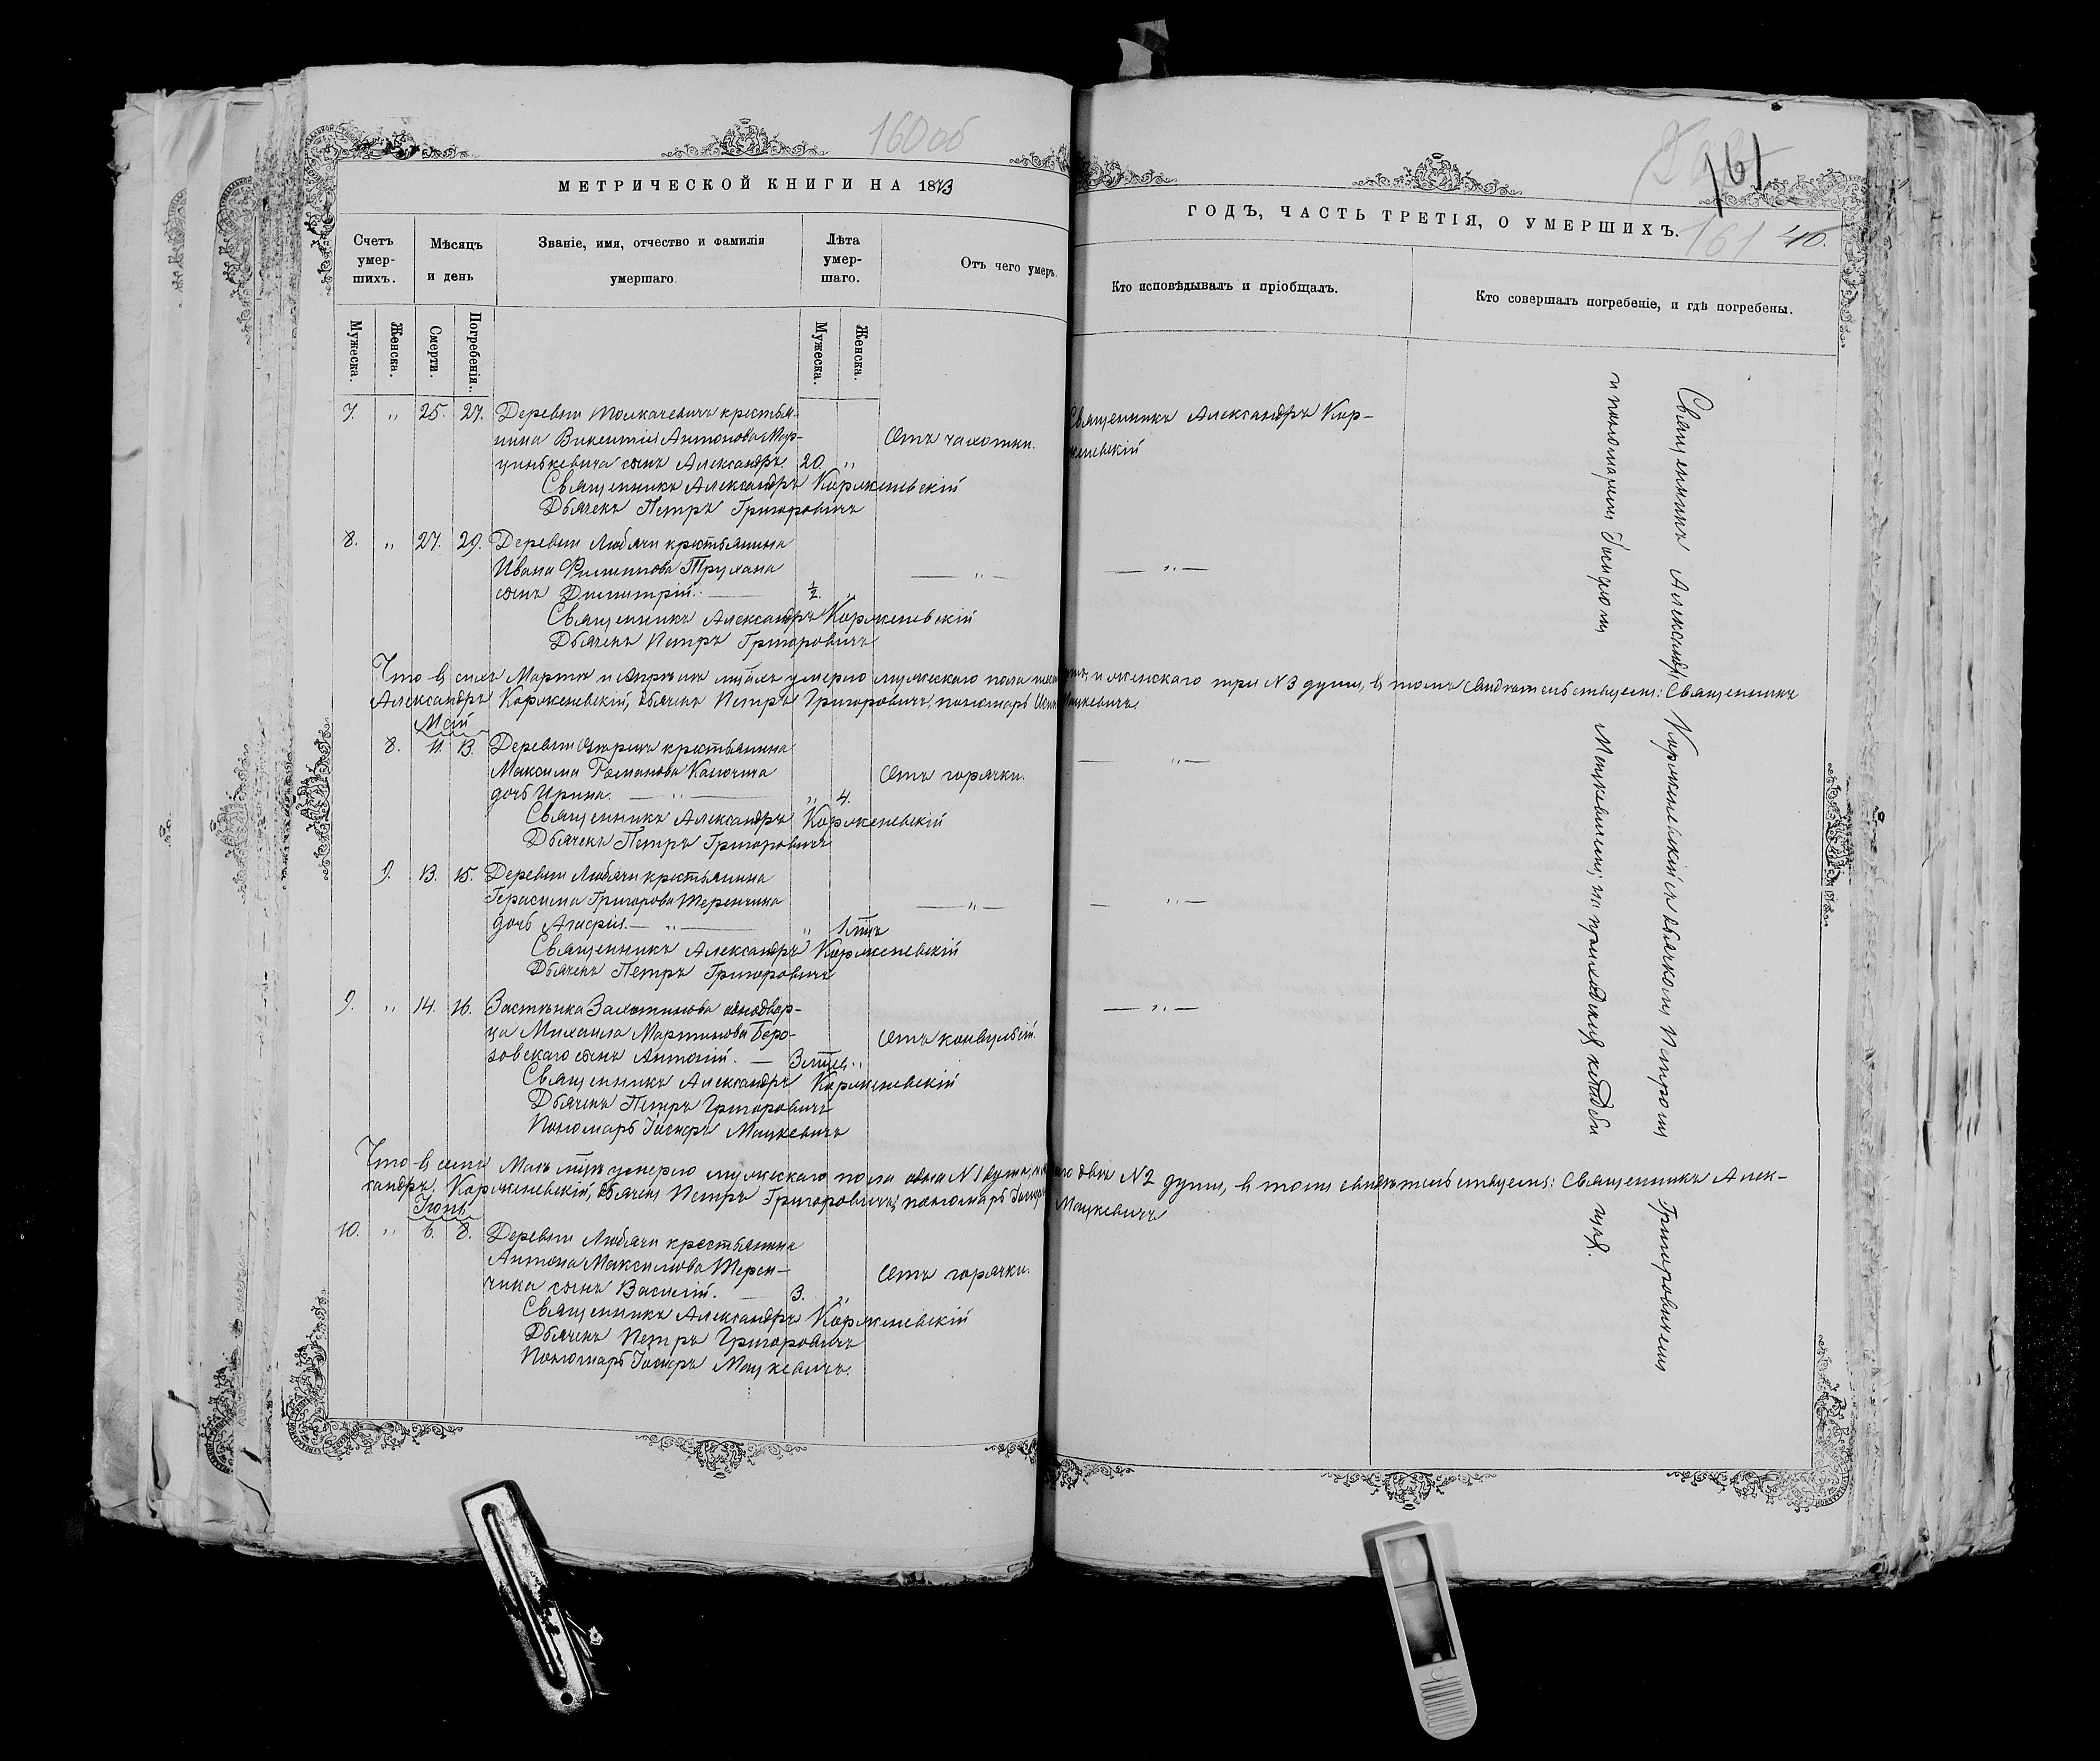 160 об
МЕТРИЧЕСКОЙ КНИГИ НА 1873
Счетъ умер-шихъ.
Мѣсяцъ и день
Званіе, имя, отчество и фамилія умершаго.
Лѣта умер-шаго.
Отъ чего умеръ.
Мужеска.
Женска.
Смерти.
Погребенія.
Мужеска.
Женска.
7. " 25. 27. Деревни Толкачевичъ крестья-
нина Викентія Антонова Мар-
цинкевича сынъ Александръ. 20. " Отъ чахотки.
Священникъ Александръ Корженевскій
Дьячекъ Петръ Григоровичъ
8. " 27. 29. Деревни Любячи крестьянина
Ивана Филиппова Трухана
сынъ Димитрій. 1/2. " — " —
Священникъ Александръ Корженевскій
Дьячекъ Петръ Григоровичъ
Что въ сихъ Мартѣ и Апрѣлѣ мѣсяцѣ умерло мужескаго пола
Александръ Корженевскій, дьячекъ Петръ Григоровичъ, пономарь
Май
8. 11. 13. Деревни крестьянина
Максима Романова
дочь Ирина. — " — " 4. Отъ горячки.
Священникъ Александръ Корженевскій
Дьячекъ Петръ Григоровичъ
9. 13. 15. Деревни Любячи крестьянина
Герасима Григорова Теренчика
дочь Агафія. — " — " — " —
Священникъ Александръ Корженевскій
Дьячекъ Петръ Григоровичъ
9. " 14. 16. Застѣнка однодвор-
ца Михаила Мартинова Бере-
зовскаго сынъ Антоній. — 3 " Отъ конвульсій.
Священникъ Александръ Корженевскій
Дьячекъ Петръ Григоровичъ
Пономарь Іосифъ Мацкевичъ
Что въ семъ Маѣ мѣсяцѣ умерло мужескаго пола одна №1 душа,
сандръ Корженевскій, дьячекъ Петръ Григоровичъ, пономарь Іосифъ
Іюнь
10. " 6. 8. Деревни Любячи крестьянина
Антона Максимова Терен-
чика сынъ Василій. — 3. " Отъ горячки.
Священникъ Александръ Корженевскій
Дьячекъ Петръ Григоровичъ
Пономарь Іосифъ Мацкевичъ.
161
161 40.
ГОДЪ, ЧАСТЬ ТРЕТІЯ, О УМЕРШИХЪ.
Кто исповѣдывалъ и пріобщалъ.
Кто совершалъ погребеніе, и гдѣ погребены.
Священникъ Александръ Кор-
женевскій
— " —
и женскаго три №3 души, въ томъ свидѣтельствуемъ: Священникъ
Мацкевичъ
— " —
— " —
— " —
двѣ №2 души, въ томъ свидѣтельствуемъ: Священникъ Алек-
Мацкевичъ
Священникъ Александръ Корженевскій съ дьячкомъ Петромъ Григоровичемъ
и пономаремъ Іосифомъ Мацкевичемъ, на приходскихъ кладби-
щахъ.